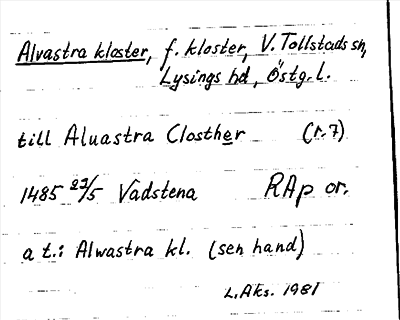 Alvastra kloster, f. kloster, V. Tollstads sn,
Lysings hd, Östg. l.
till Aluastra Closther (r. 7)
1485 27/5 Vadstena RAp or.
a t.: Alwastra kl. (sen hand)
L. Aks. 1981